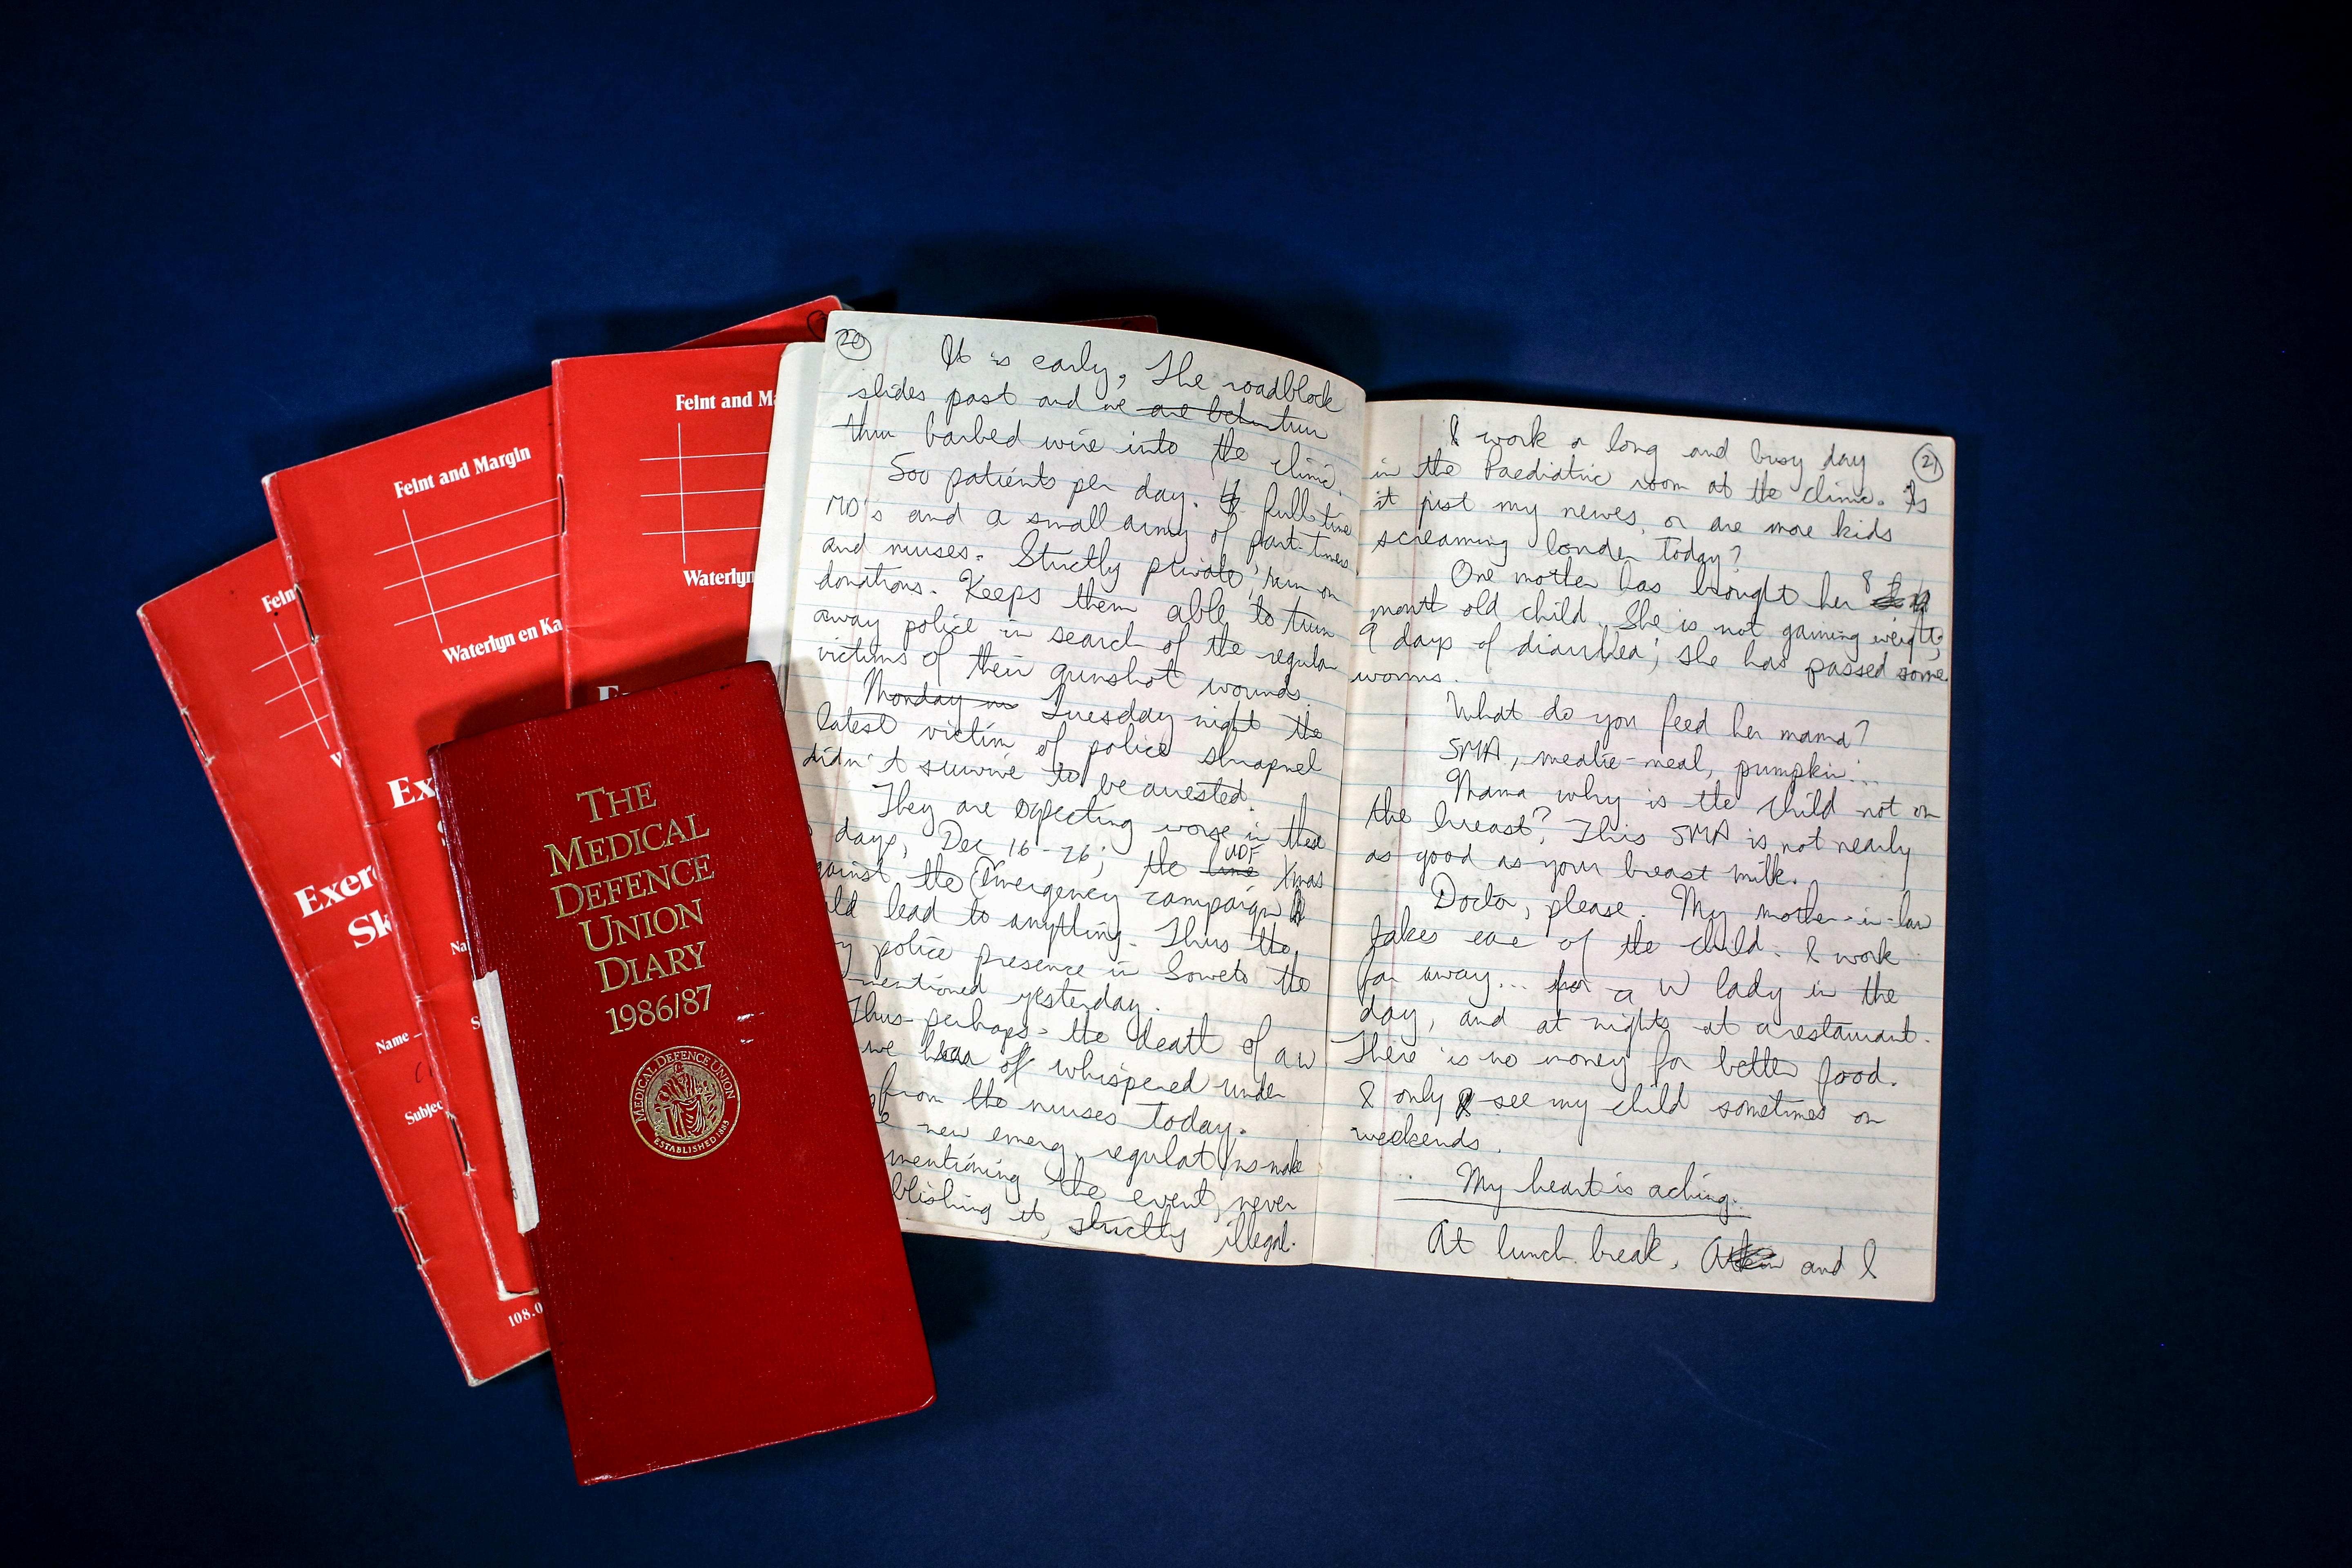 Feint and Margin
Waterlyn en Ka
Feint and Ma
Waterlyn
Fein
W
Ex
Exer
Sk
Na
S
Name
Subjec
108.0
THE
MEDICAL
DEFENCE
UNION
DIARY
1986/87
MEDICAL DEFENCE UNION
ESTABLISHED 1885
20
It is early, The roadblock
slides past and we are turn
thru barbed wire into the clinic.
500 patients per day. full time
MD's and a small army of part-timers
and nurses. Strictly private, run on
donations. Keeps them able to turn
away police in search of the regular
victims of their gunshot wounds.
Monday Tuesday night the
latest victim of police shrapnel
didn't survive to be arrested.
They are expecting worse in these
days, Dec 16-26; the UDF Xmas
gainst the Emergency campaign
ld lead to anything. Thus the
y police presence in Soweto the
mentioned yesterday.
Thus - perhaps - the death of a w
we of whispered under
from the nurses today.
new emerg. regulations make
mentioning the event, never
blishing it, strictly illegal.
21
I work a long and busy day
in the Paediatric room at the clinic. Is
it just my nerves, or are more kids
screaming louder today?
One mother has brought her 8
month old child. She is not gaining weight;
9 days of diarrhea; she has passed some
worms.
What do you feed her mama?
SMA, mealie-meal, pumpkin...
Mama why is the child not on
the breast? This SMA is not nearly
as good as your breast milk.
Doctor, please. My mother-in-law
takes care of the child. I work
far away... for a W lady in the
day, and at nights at a restaurant.
There is no money for better food.
I only see my child sometimes on
weekends.
My heart is aching.
At lunch break, and I